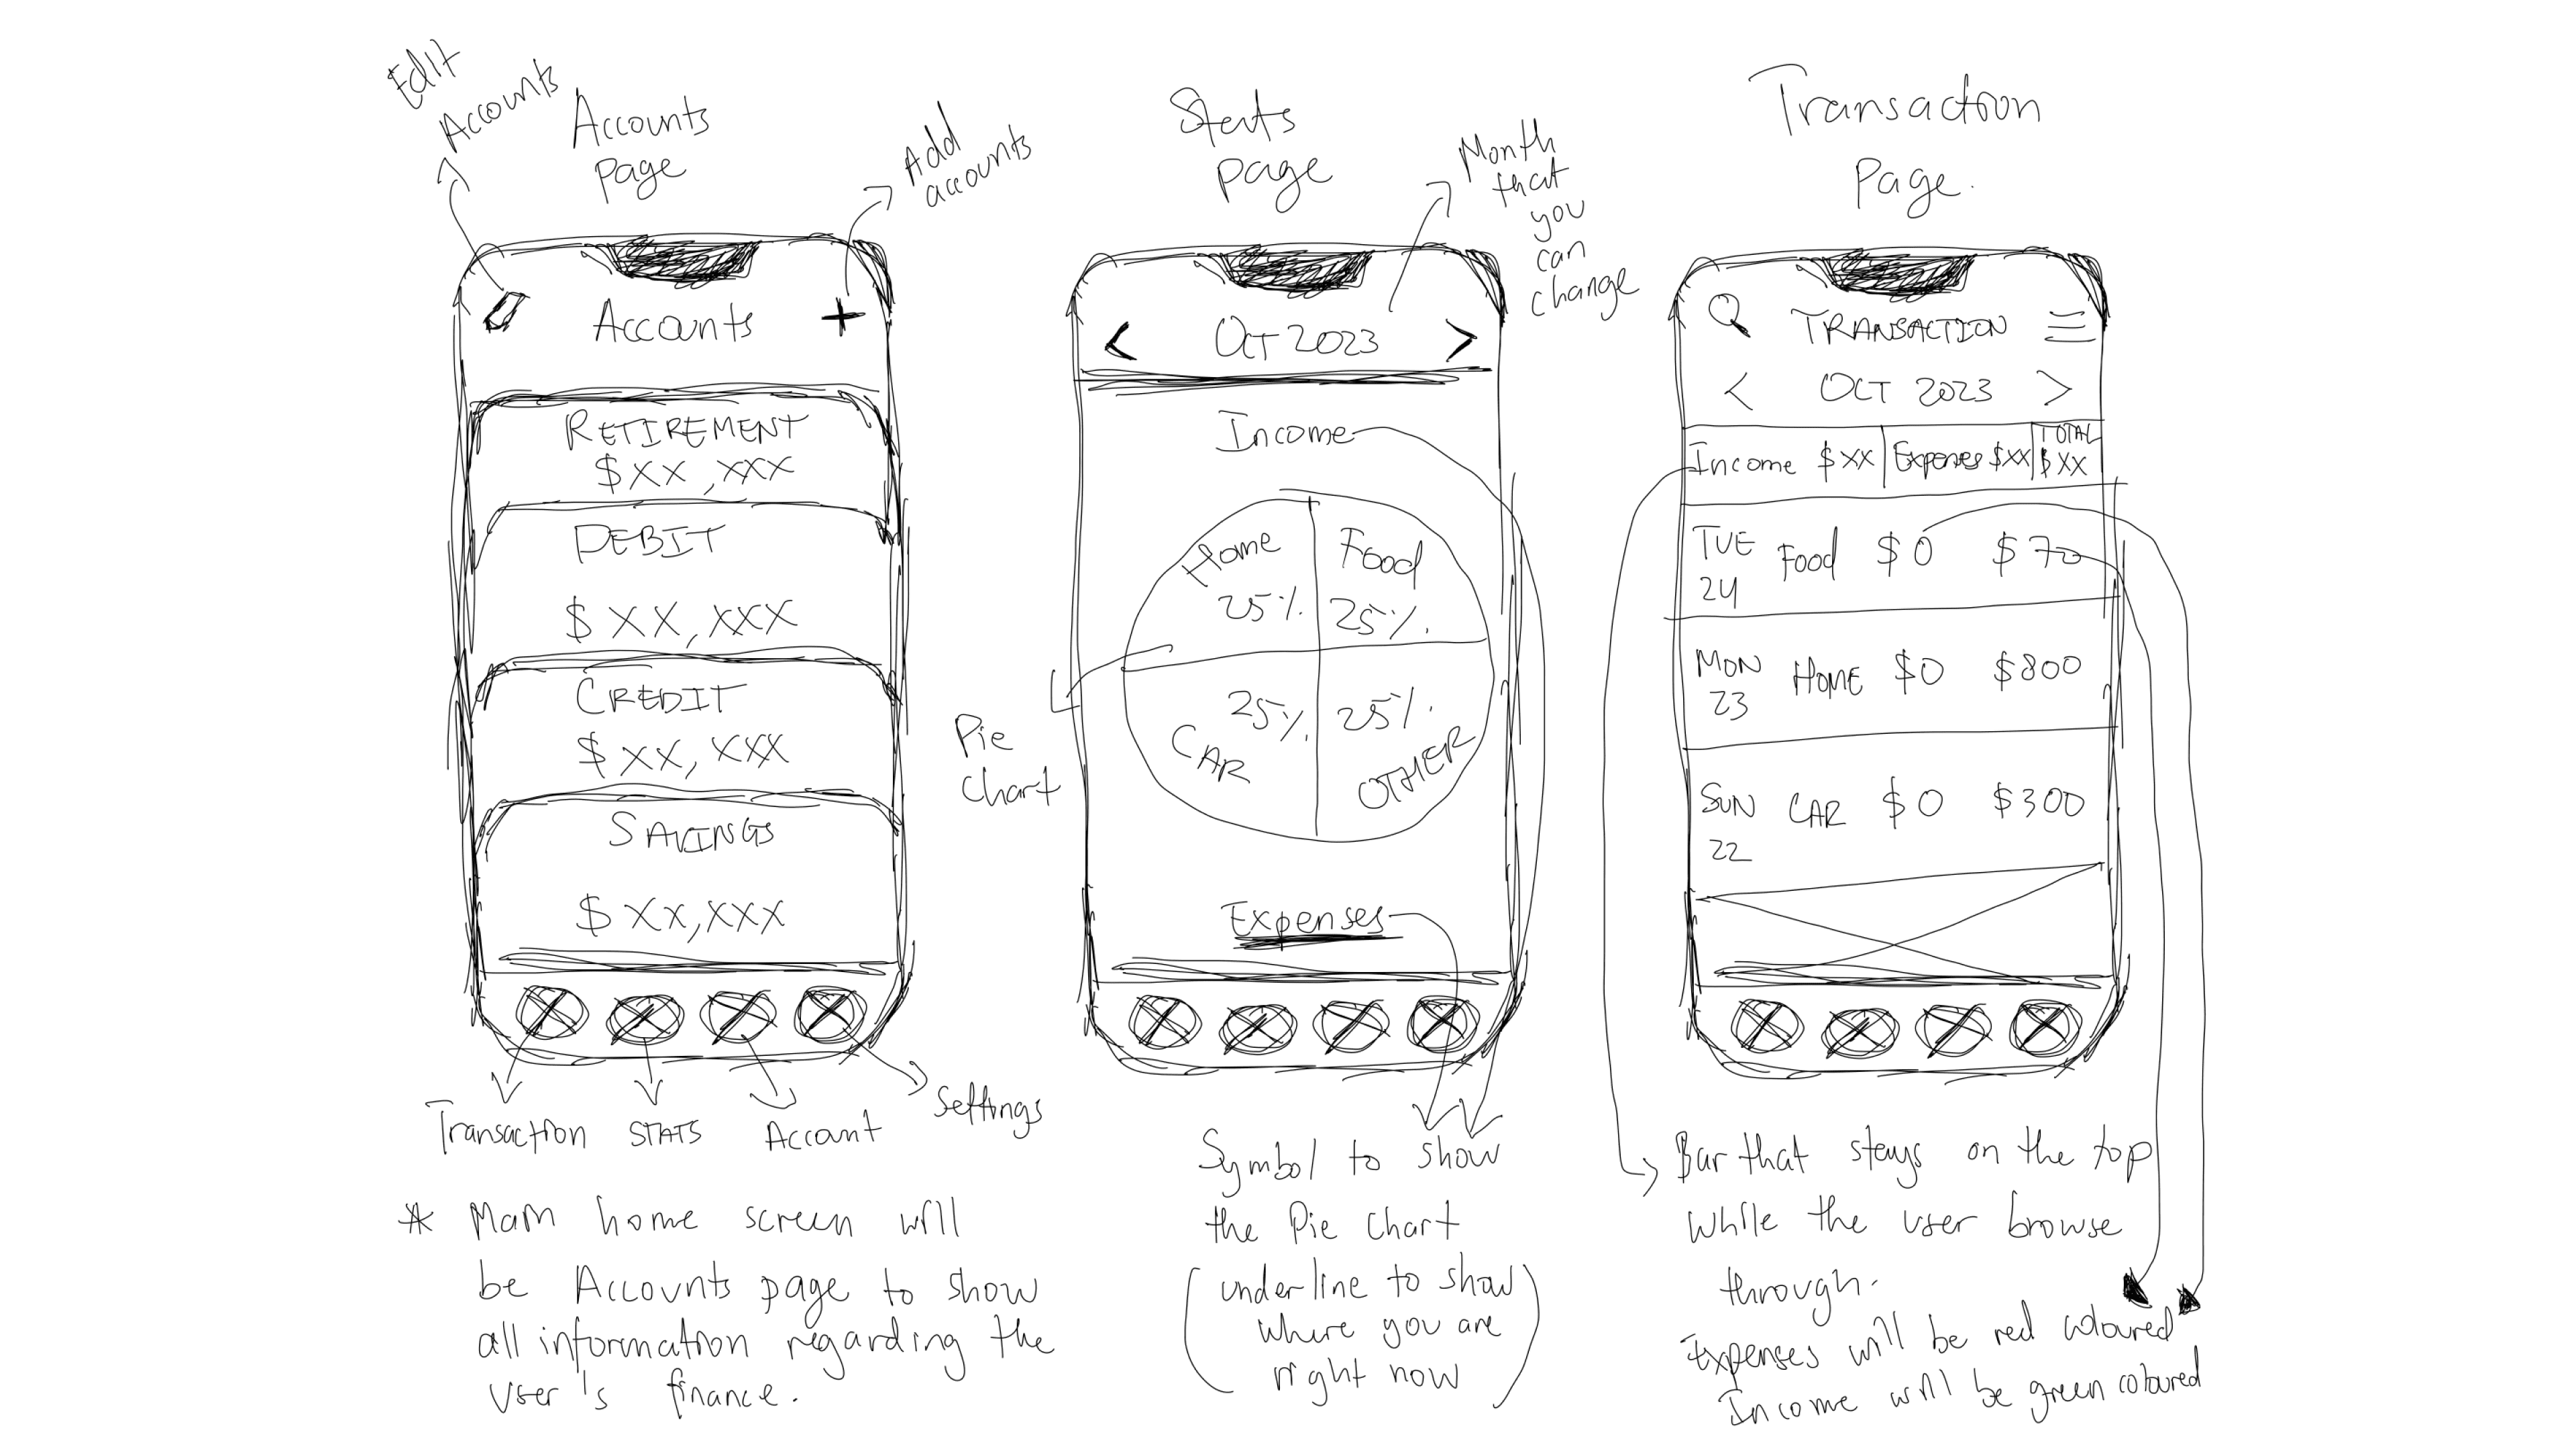 Edit
Accounts
Accounts
Page
Add
accounts
Accounts
RETIREMENT
$XX,XXX
DEBIT
$XX,XXX
CREDIT
$XX,XXX
SAVINGS
$XX,XXX
Transaction
STATS
Account
Settings
* Main home screen will
be Accounts page to show
all information regarding the
User's finance.
Stats
Page
Month
that
you
can
change
< OCT 2023 >
Income
Home
25%
Food
25%
25%
CAR
25%
OTHER
Pie
Chart
Expenses
Symbol to show
the Pie Chart
(underline to show
where you are
right now)
Transaction
Page.
TRANSACTION
< OCT 2023 >
Income $XX
Expenses $XX
TOTAL
$XX
TUE
24
Food $0 $70
MON
23
HOME $0 $800
SUN
22
CAR $0 $300
Bar that stays on the top
while the user browse
through.
Expenses will be red coloured
Income will be green coloured